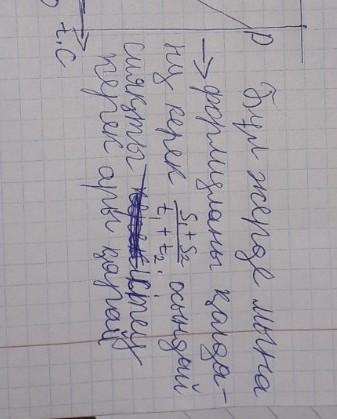 D
t, c
Бұл жерде мына
→ формуланы қолда-
ну керек S₁ + S₂ / t₁ + t₂. осындай
сияқты істеу
керек ары қарай